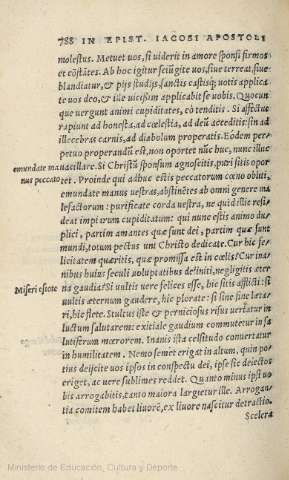 788 IN EPIST. IACOBI APOSTOLI
molestus. Metuet uos, si uiderit in amore sponsi firmos
et cōstātes. Ab hoc igitur seiūgite uos, siue terreat, siue
blandiatur, & pijs studijs, sanctis castisq; uotis applica
te uos deo, & ille uicissim applicabit se uobis. Quocun
que uergunt animi cupiditates, eò tenditis. Si affectus
rapiunt ad honesta, ad cœlestia, ad deū acceditis: sin ad
illecebras carnis, ad diabolum properatis. Eódem per=
petuo properandū est, non oportet nūc huc, nunc illuc
emundate manus
uacillare. Si Christū sponsum agnoscitis, puri sitis opor
nus peccato
tet. Proinde qui adhuc estis peccatorum cœno obliti,
emundate manus uestras, abstinētes ab omni genere ma
lefactorum: purificate corda uestra, ne quid illic resi=
deat impurarum cupiditatum: qui nunc estis animo du
plici, partim amantes quæ sunt dei, partim quæ sunt
mundi, totum pectus uni Christo dedicate. Cur hic fe
licitatem quæritis, quæ promissa est in cœlis? Cur ina=
nibus huius seculi uoluptatibus deliniti, negligitis æter
Miseri estote
na gaudia? Si uultis uere felices esse, hic sitis afflicti: si
uultis æternum gaudere, hic plorate: si sine fine læta=
ri, hic flete. Stultus iste & perniciosus risus uertatur in
luctum salutarem: exitiale gaudium commutetur in sa
lutiferum mœrorem. Inanis ista celsitudo conuertatur
in humilitatem. Nemo semet erigat in altum, quin po
tius deijcite uos ipsos in conspectu dei, ipse sic deiectos
eriget, ac uere sublimes reddet. Quanto minus ipsi uo
bis arrogabitis, tanto maiora largietur ille. Arrogan
tia comitem habet liuorē, ex liuore nascitur detractio.
Scelera
Ministerio de Educación, Cultura y Deporte